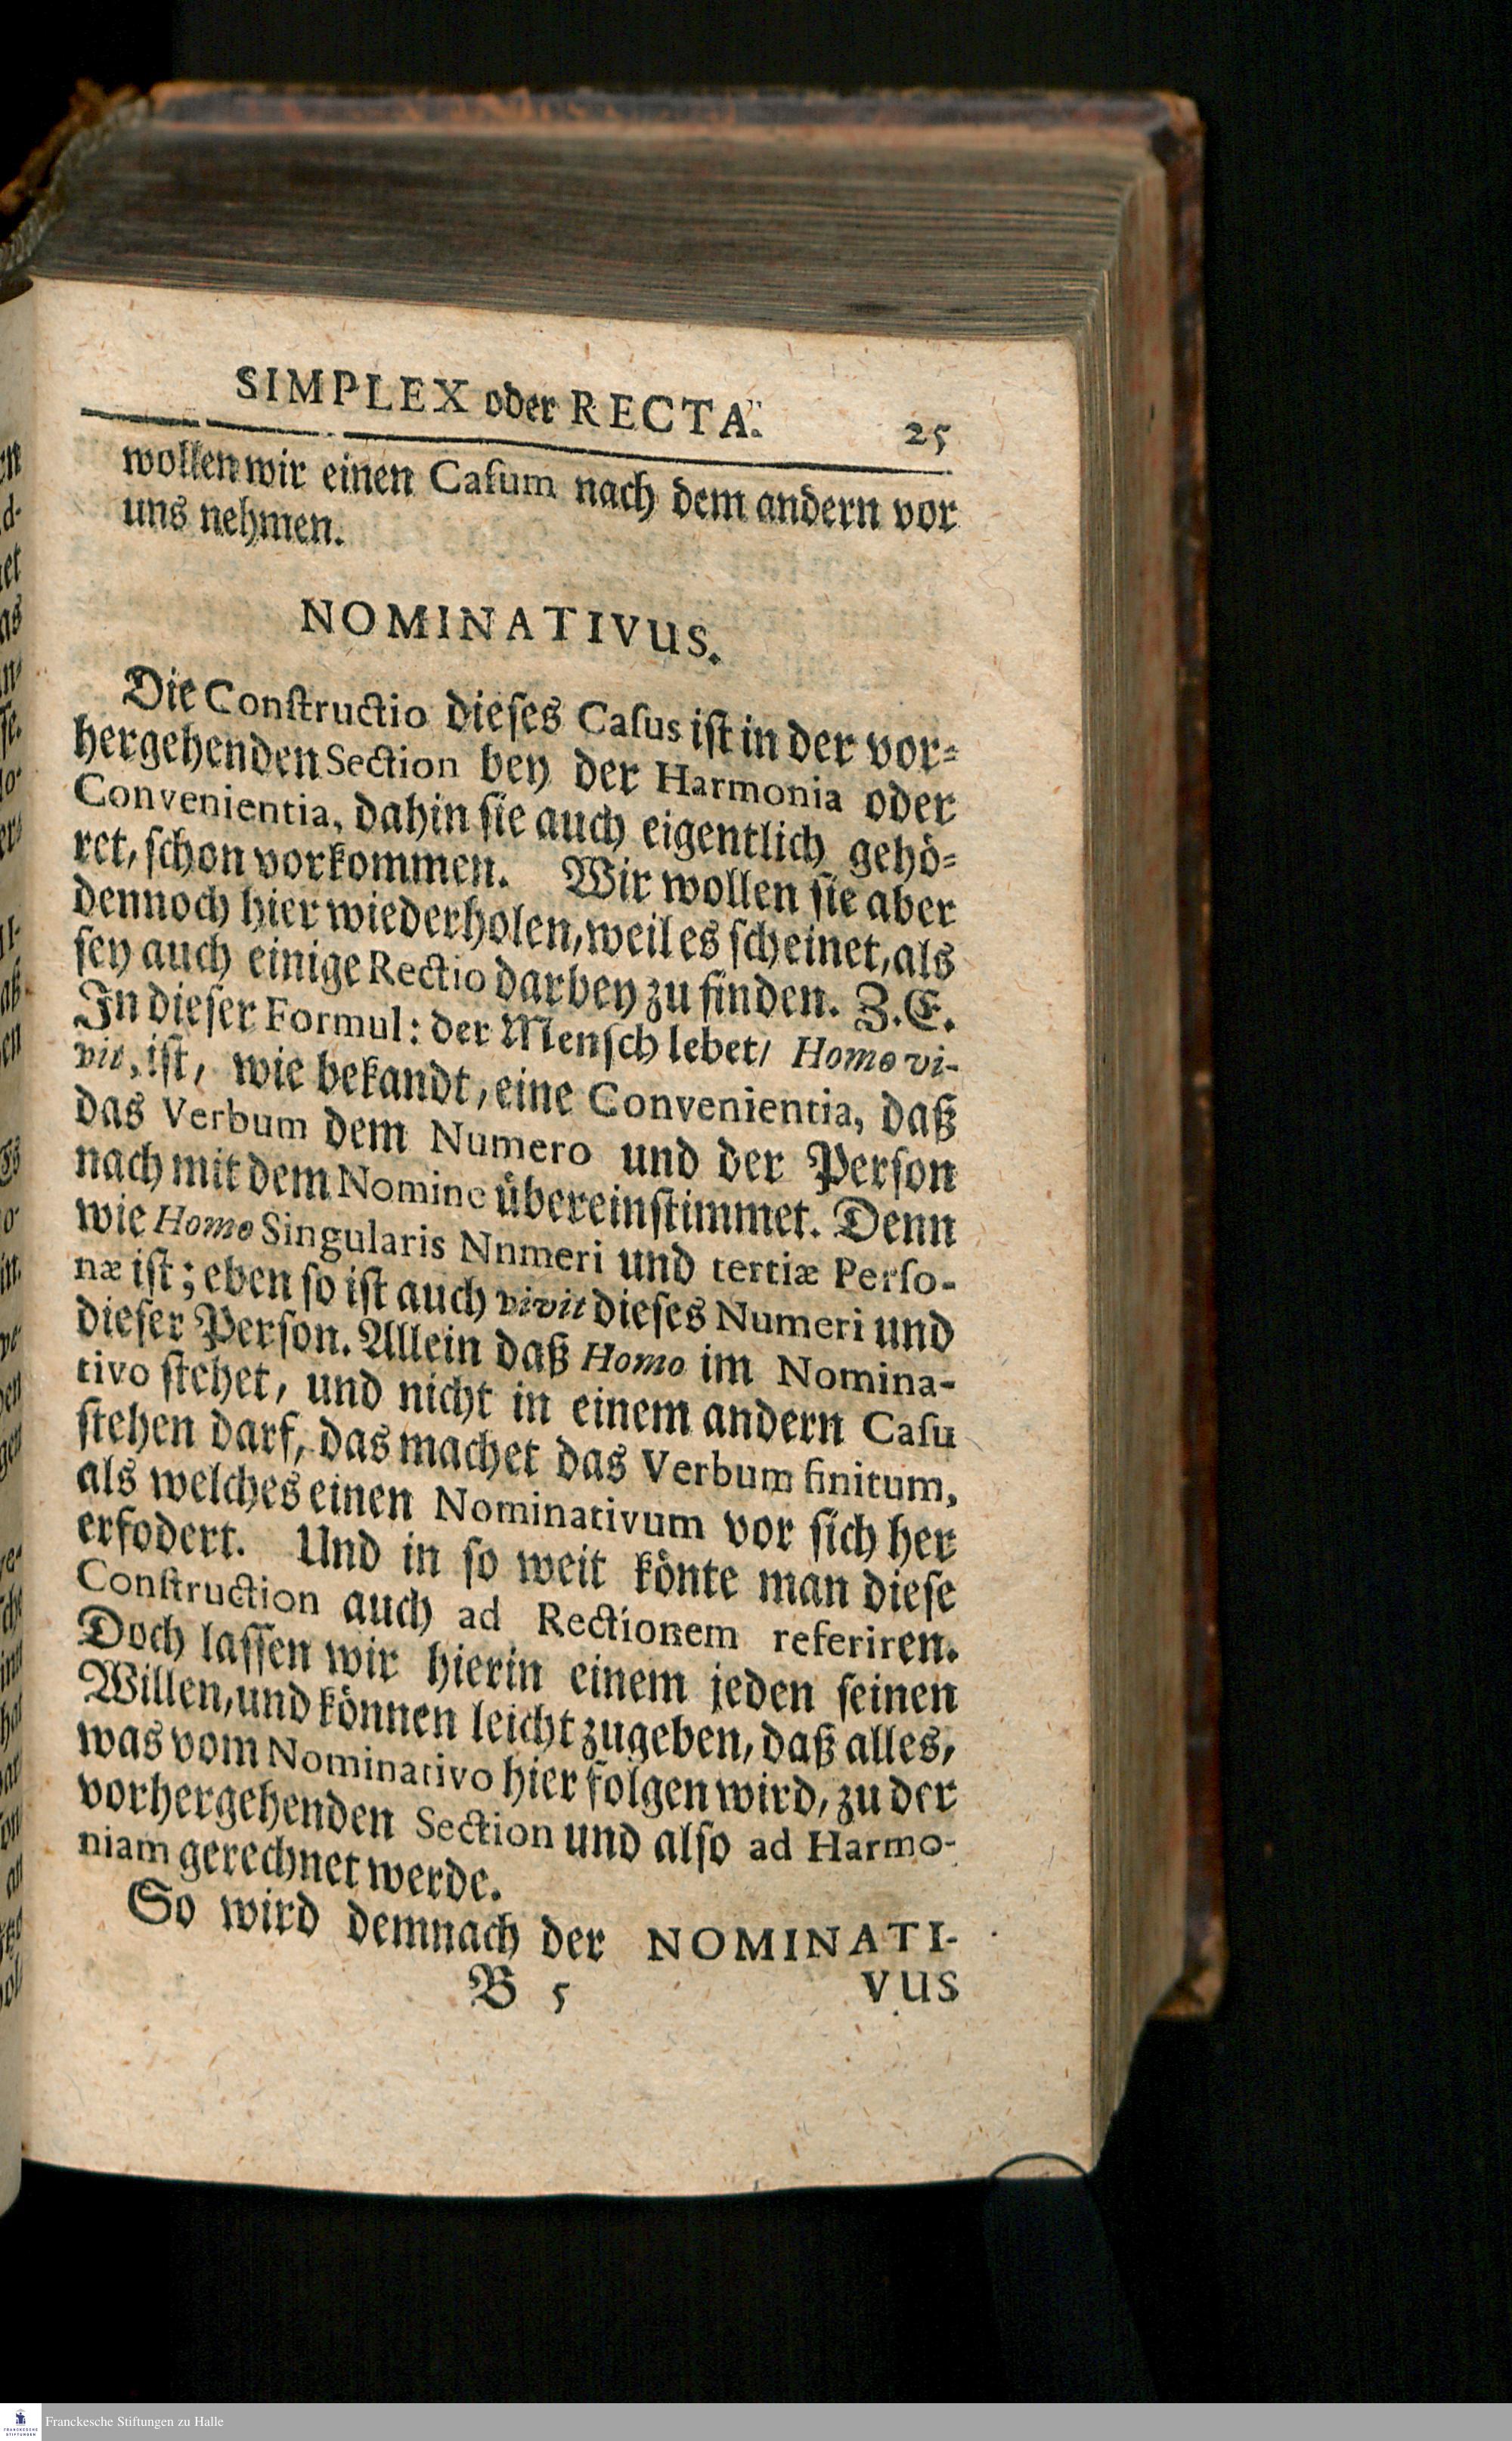 SIMPLEX oder RECTA. 25
wollen wir einen Caſum nach dem andern vor
uns nehmen.
NOMINATIVUS.
Die Conſtructio dieſes Caſus iſt in der vor-
hergehenden Section bey der Harmonia oder
Convenientia, dahin ſie auch eigentlich gehö-
ret, ſchon vorkommen. Wir wollen ſie aber
dennoch hier wiederholen, weil es ſcheinet, als
ſey auch einige Rectio darbey zu finden. Z. E.
In dieſer Formul: der Menſch lebet/ Homo vi-
vit, iſt, wie bekandt, eine Convenientia, daß
das Verbum dem Numero und der Perſon
nach mit dem Nomine übereinſtimmet. Denn
wie Homo Singularis Nnmeri und tertiæ Perſo-
næ iſt; eben ſo iſt auch vivit dieſes Numeri und
dieſer Perſon. Allein daß Homo im Nomina-
tivo ſtehet, und nicht in einem andern Caſu
ſtehen darf, das machet das Verbum finitum,
als welches einen Nominativum vor ſich her
erfodert. Und in ſo weit könte man dieſe
Conſtruction auch ad Rectionem referiren.
Doch laſſen wir hierin einem jeden ſeinen
Willen, und können leicht zugeben, daß alles,
was vom Nominativo hier folgen wird, zu der
vorhergehenden Section und alſo ad Harmo-
niam gerechnet werde.
So wird demnach der NOMINATI-
B 5 VUS
Franckesche Stiftungen zu Halle